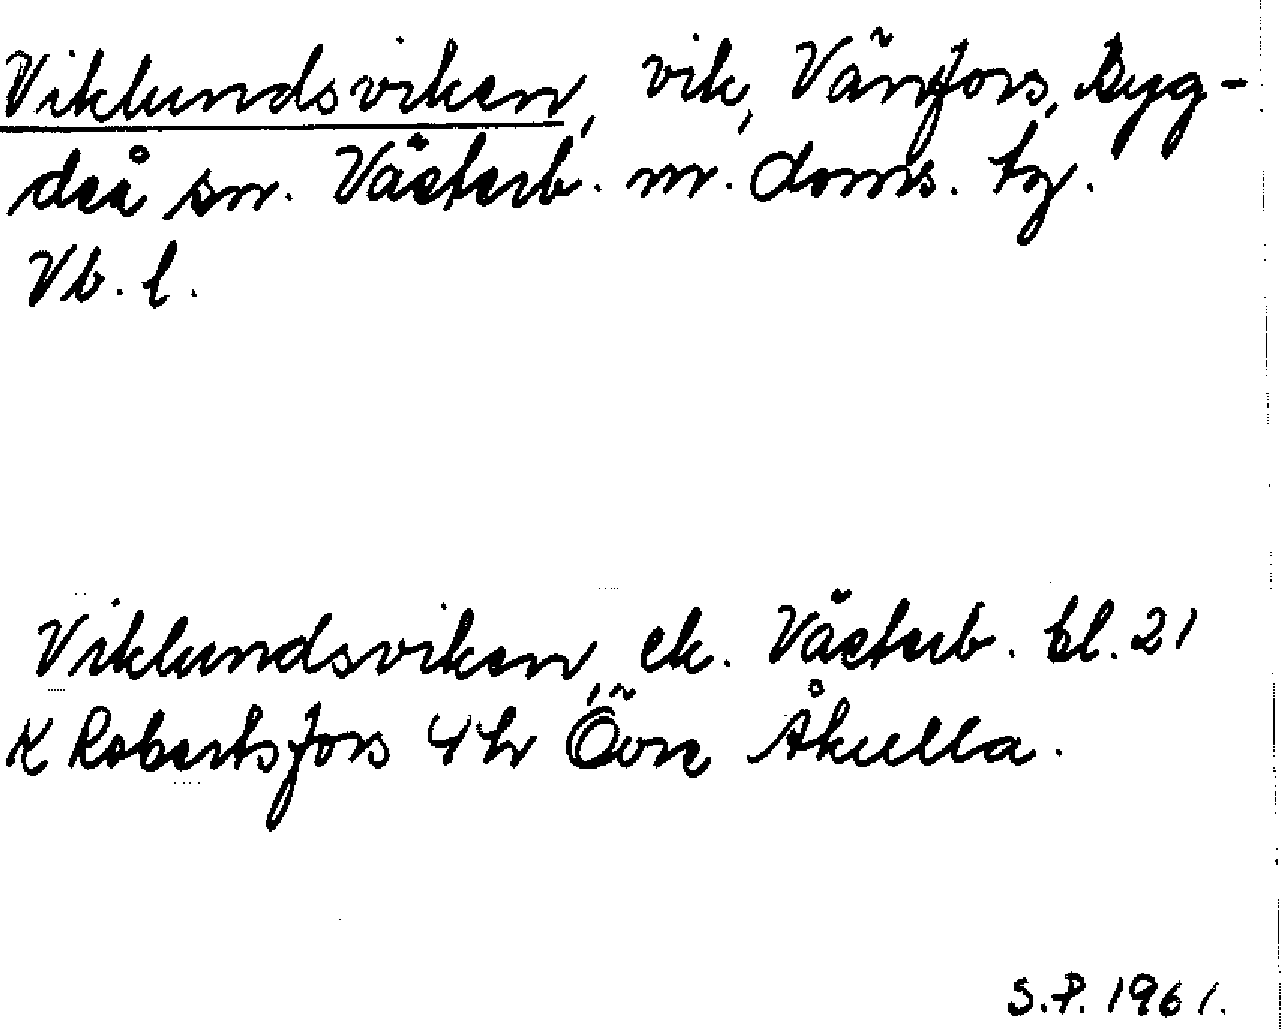 Viklundsviken, vik, Vänfors, Byg-
deå sn. Västerb. m. doms. tg.
Vb. l.
Viklundsviken, ek. Västerb. bl. 21
K Robertsfors 4 h Övre Åkulla.
S.P. 1961.